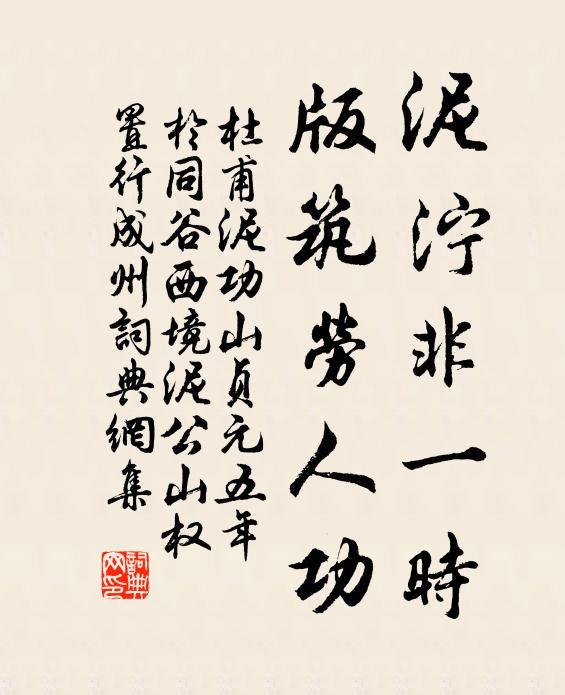 泥泞非一時
版筑勞人功
杜甫泥功山貞元五年
於同谷西境泥公山权
置行成州詞典網集
詞典網印